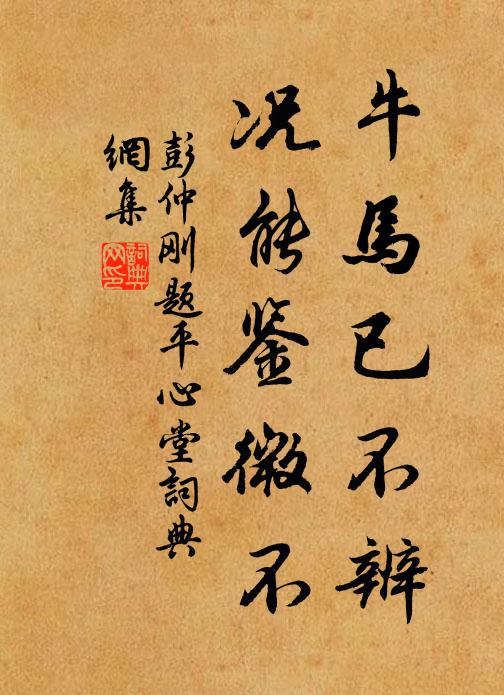 牛馬已不辨
况能鉴微不
彭仲刚题平心堂詞典
網集
詞典網印